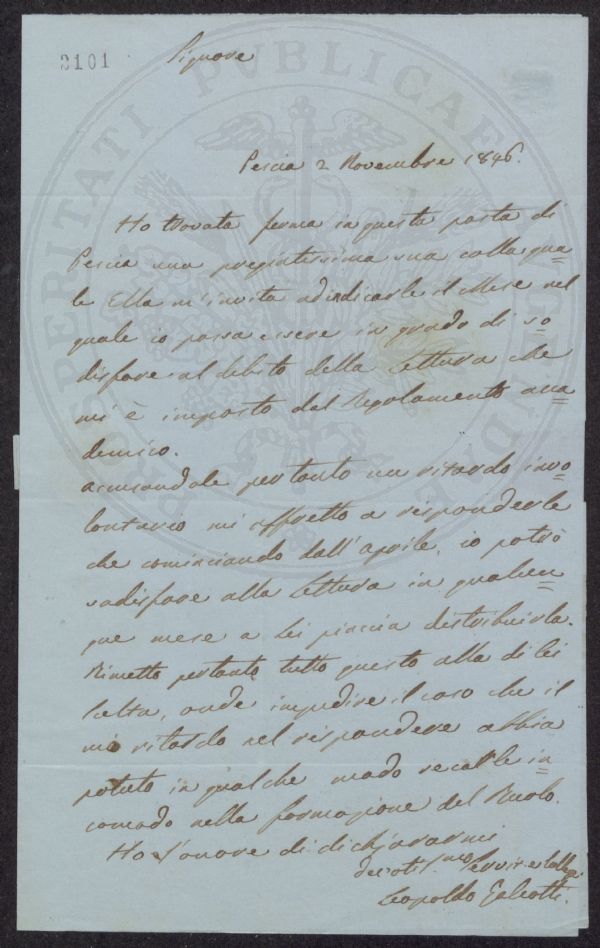 2101
Signore
Pescia 2 Novembre 1846.
Ho trovata ferma in questa posta di
Pescia una pregiatissima sua colla qua=
le Ella m'invita ad indicarle il Mese nel
quale io possa essere in grado di so=
disfare al debito della Lettura che
mi è imposto dal Regolamento acca=
demico.
Accusandole per tanto un ritardo invo=
lontario mi affretto a risponderle
che cominciando dall'aprile, io potrò
sodisfare alla Lettura in qualun=
que mese a Lei piaccia distribuirla.
Rimetto pertanto tutto questo alla di lei
scelta, onde impedire il caso che il
mio ritardo nel rispondere abbia
potuto in qualche modo recarle in=
comodo nella formazione del Ruolo.
Ho l'onore di dichiararmi
devotismo servit. e colleg.
Leopoldo Galeotti.
PROSPERITATI PVBLICAE AVGENDAE